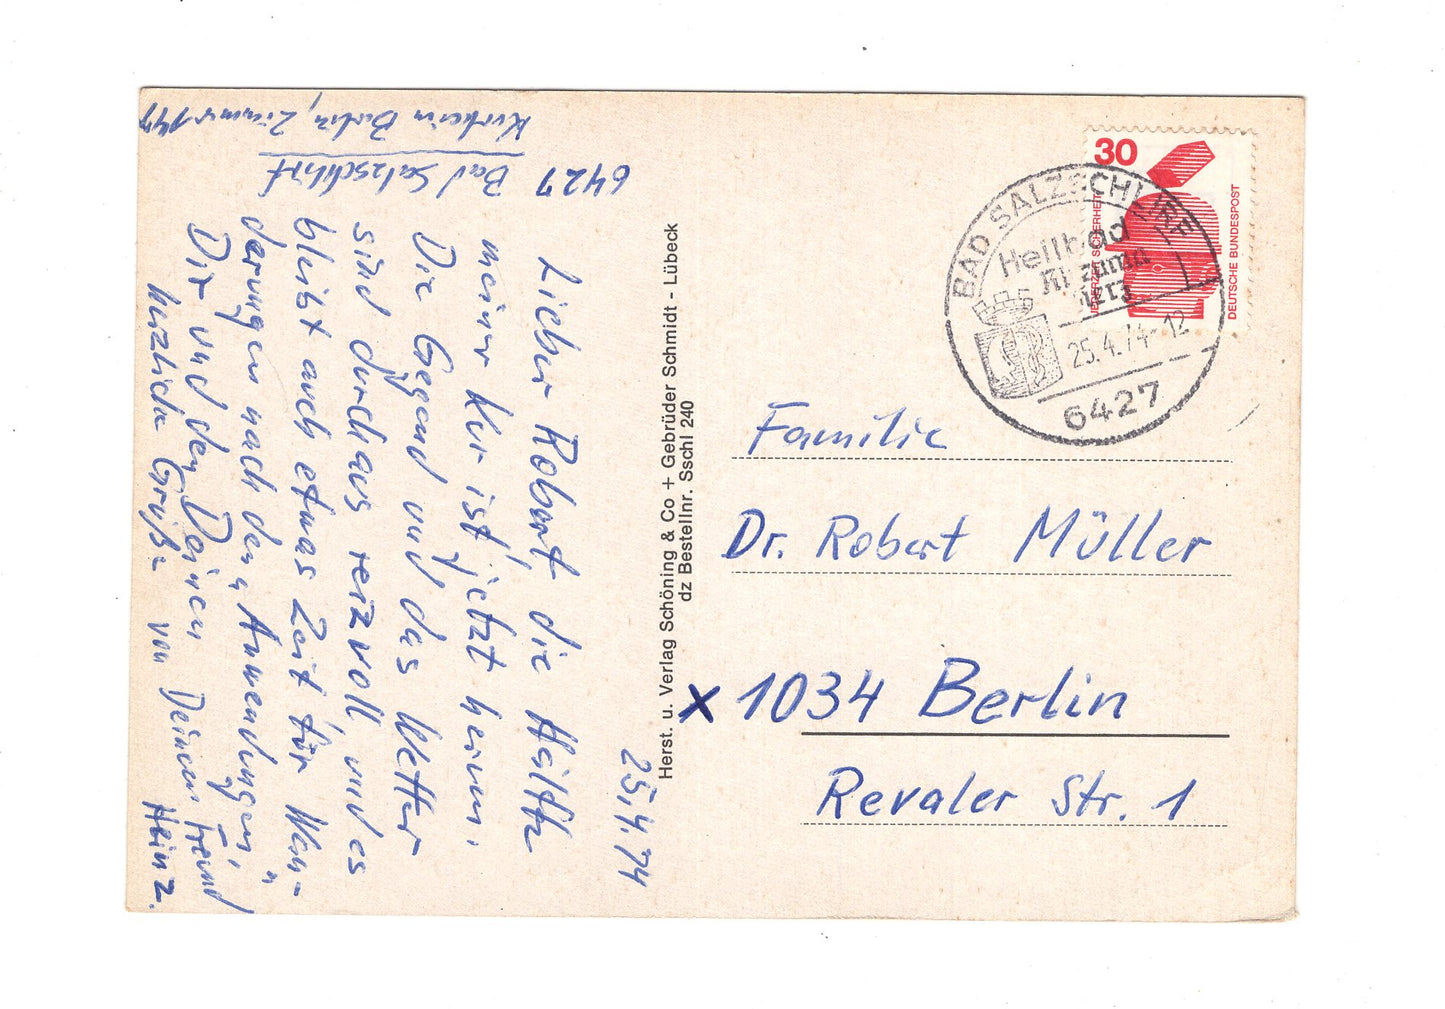 Kurheim Berlin, Zimmer 144
6427 Bad Salzschlirf
25.4.74
Lieber Robert, die Hälfte
meiner Kur ist jetzt herum.
Die Gegend und das Wetter
sind durchaus reizvoll, und es
bleibt auch etwas Zeit für Wan-
derungen nach den „Anwendungen“.
Dir und den Deinen
herzliche Grüße von Deinem Freund
Heinz.
Herst. u. Verlag Schöning & Co + Gebrüder Schmidt - Lübeck
dz Bestellnr. Sschl 240
30
JEDERZEIT SICHERHEIT
DEUTSCHE BUNDESPOST
BAD SALZSCHLIRF
Heilbad
für
25.4.74-12
6427
Familie
Dr. Robert Müller
x 1034 Berlin
Revaler Str. 1